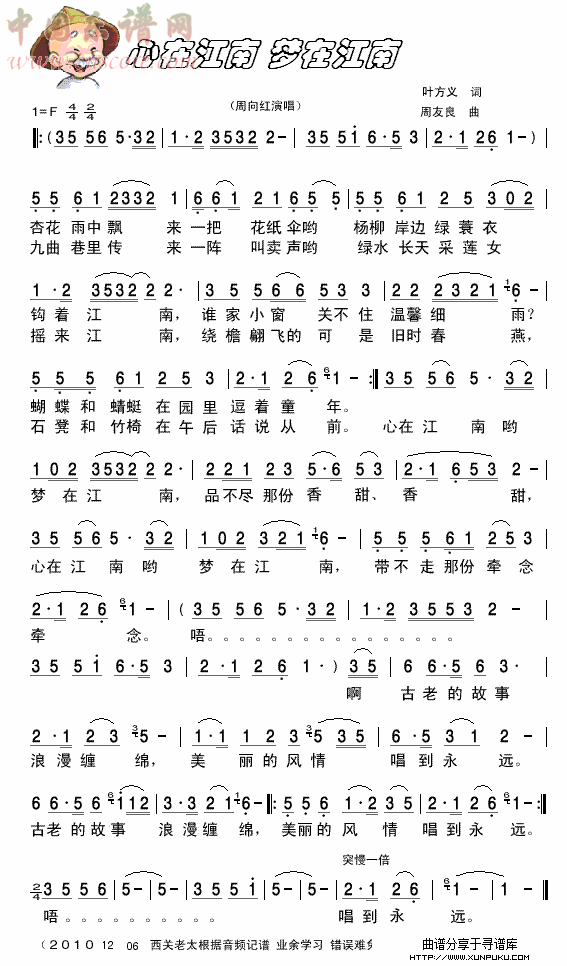 中国乐谱网
www.cnscore.com
心在江南 梦在江南
叶方义 词
1=F 4/4 2/4
（周向红演唱）
周友良 曲
‖:(35 56 5·32 | 1·2 3532 2- | 35 51 6·5 3 | 2·1 26 1-)
5 5 6 1 2332 1 | 6 6 1 2 1 6 5 5 | 5 5 6 1 2 5 3 0 2
杏花 雨中飘 来 一把 花纸伞哟 杨柳 岸边 绿 蓑 衣
九曲 巷里传 来 一阵 叫卖声哟 绿水 长天 采 莲 女
钩着 江 南，谁家小窗 关不 住 温馨细 雨？
摇来 江 南，绕檐翩飞的 可 是 旧时春 燕，
5 5·5 6 1 2 5 3 | 2·1 2 6 6 1 - :‖ 3 5 5 6 5· 3 2
蝴 蝶和 蜻蜓 在园里 逗着童 年。
石 凳和 竹椅 在午后 话说从 前。 心在江 南哟
1 0 2 3532 2 2· | 2 2 1 2 3 5·6 5 3 | 2·1 6 5 3 2 -
梦 在 江 南，品不尽 那份 香 甜、香 甜，
3 5 5 6 5· 3 2 | 1 0 2 3 2 1 1 6 - | 5 5 5 6 1 2 5 3
心在 江 南哟 梦 在 江 南，带不 走 那份 牵 念
2·1 2 6 6 1 - | (3 5 5 6 5 ·3 2 | 1·2 3 5 5 3 2 -
牵 念。 唔。。。。。。。。。。。。。。
3 5 5 1 6·5 3 | 2·1 2 6 1·) 3 5 | 6 6·5 6 3·
啊 古 老 的 故 事
2 ·1 2 3 3 5 - | 1·1 1 2 3 5 3 5 | 6·5 3 1 2 -
浪 漫 缠 绵，美 丽 的 风 情 唱 到 永 远。
古老 的 故事 浪 漫 缠 绵，美丽的 风 情 唱 到 永 远。
突慢一倍
2/4 3 5 5 6 | 5 - | 5 - | 3 5 5 1 | 5 - | 5 - | 2·1 2 6 | 6 1 - | 1 - ‖
唔 。。。。。。。。。 唱到 永 远。
（ 2010 12 06 西关老太根据音频记谱 业余学习 错误难
曲谱分享于寻谱库
WWW.XUNPUKU.COM